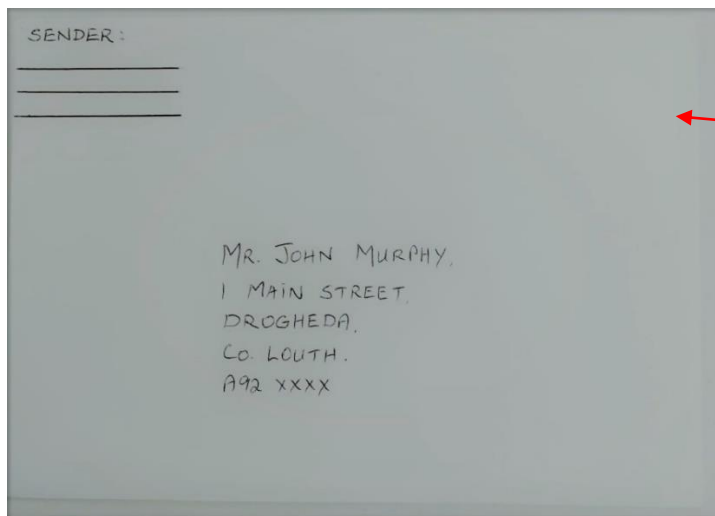 SENDER:
MR. JOHN MURPHY,
1 MAIN STREET,
DROGHEDA,
CO. LOUTH.
A92 XXXX